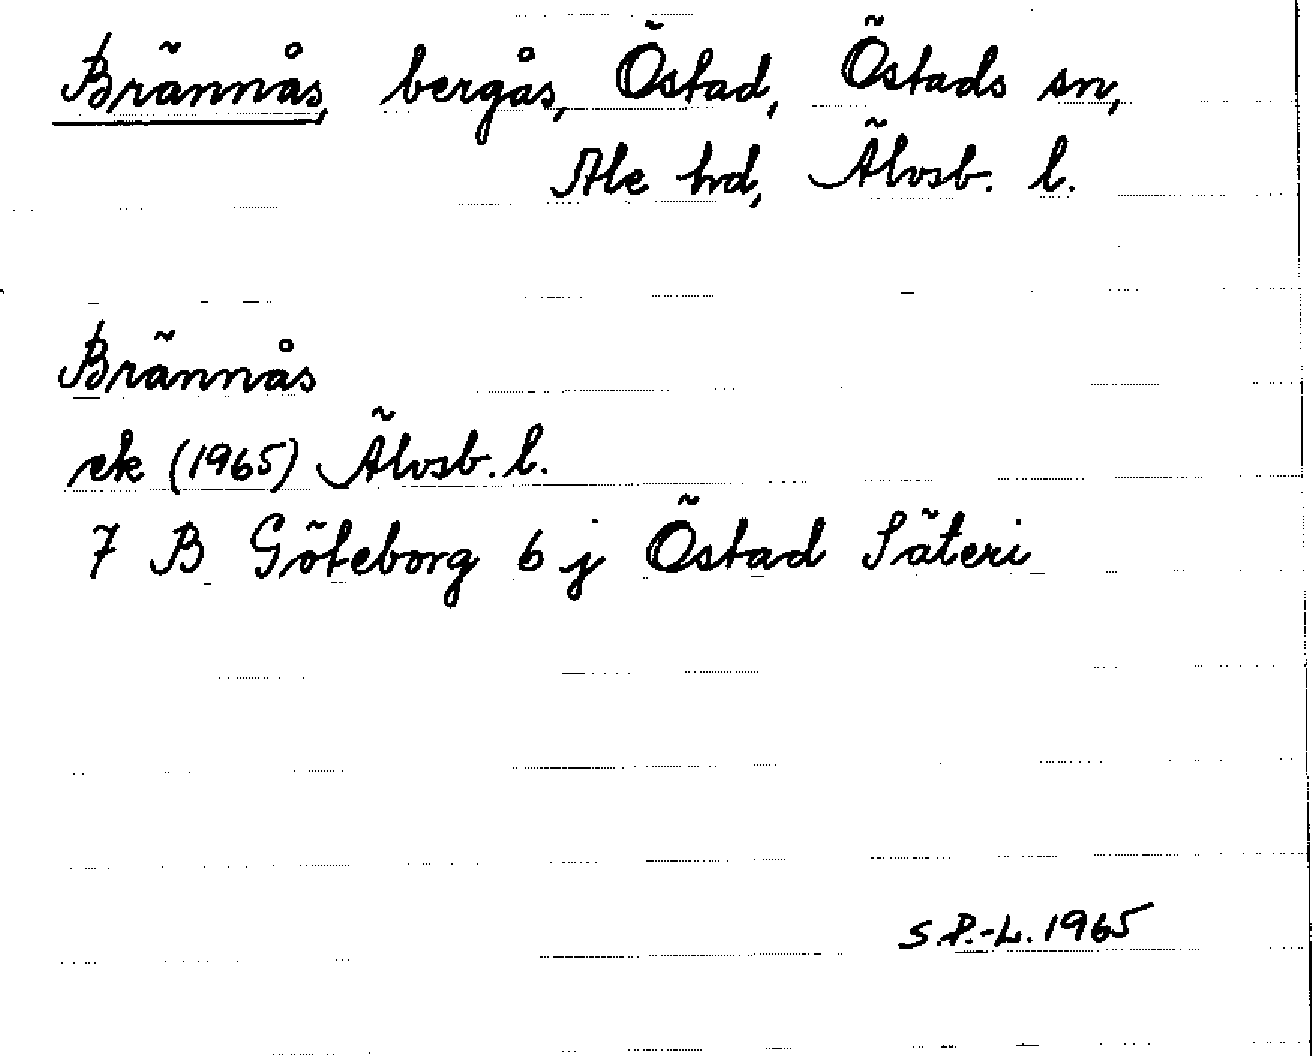 Brännås, bergås, Östad, Östads sn,
Ale hd, Älvsb. l.
Brännås
ek (1965) Älvsb. l.
7 B Göteborg 6 j Östad Säteri
S.P.-L. 1965